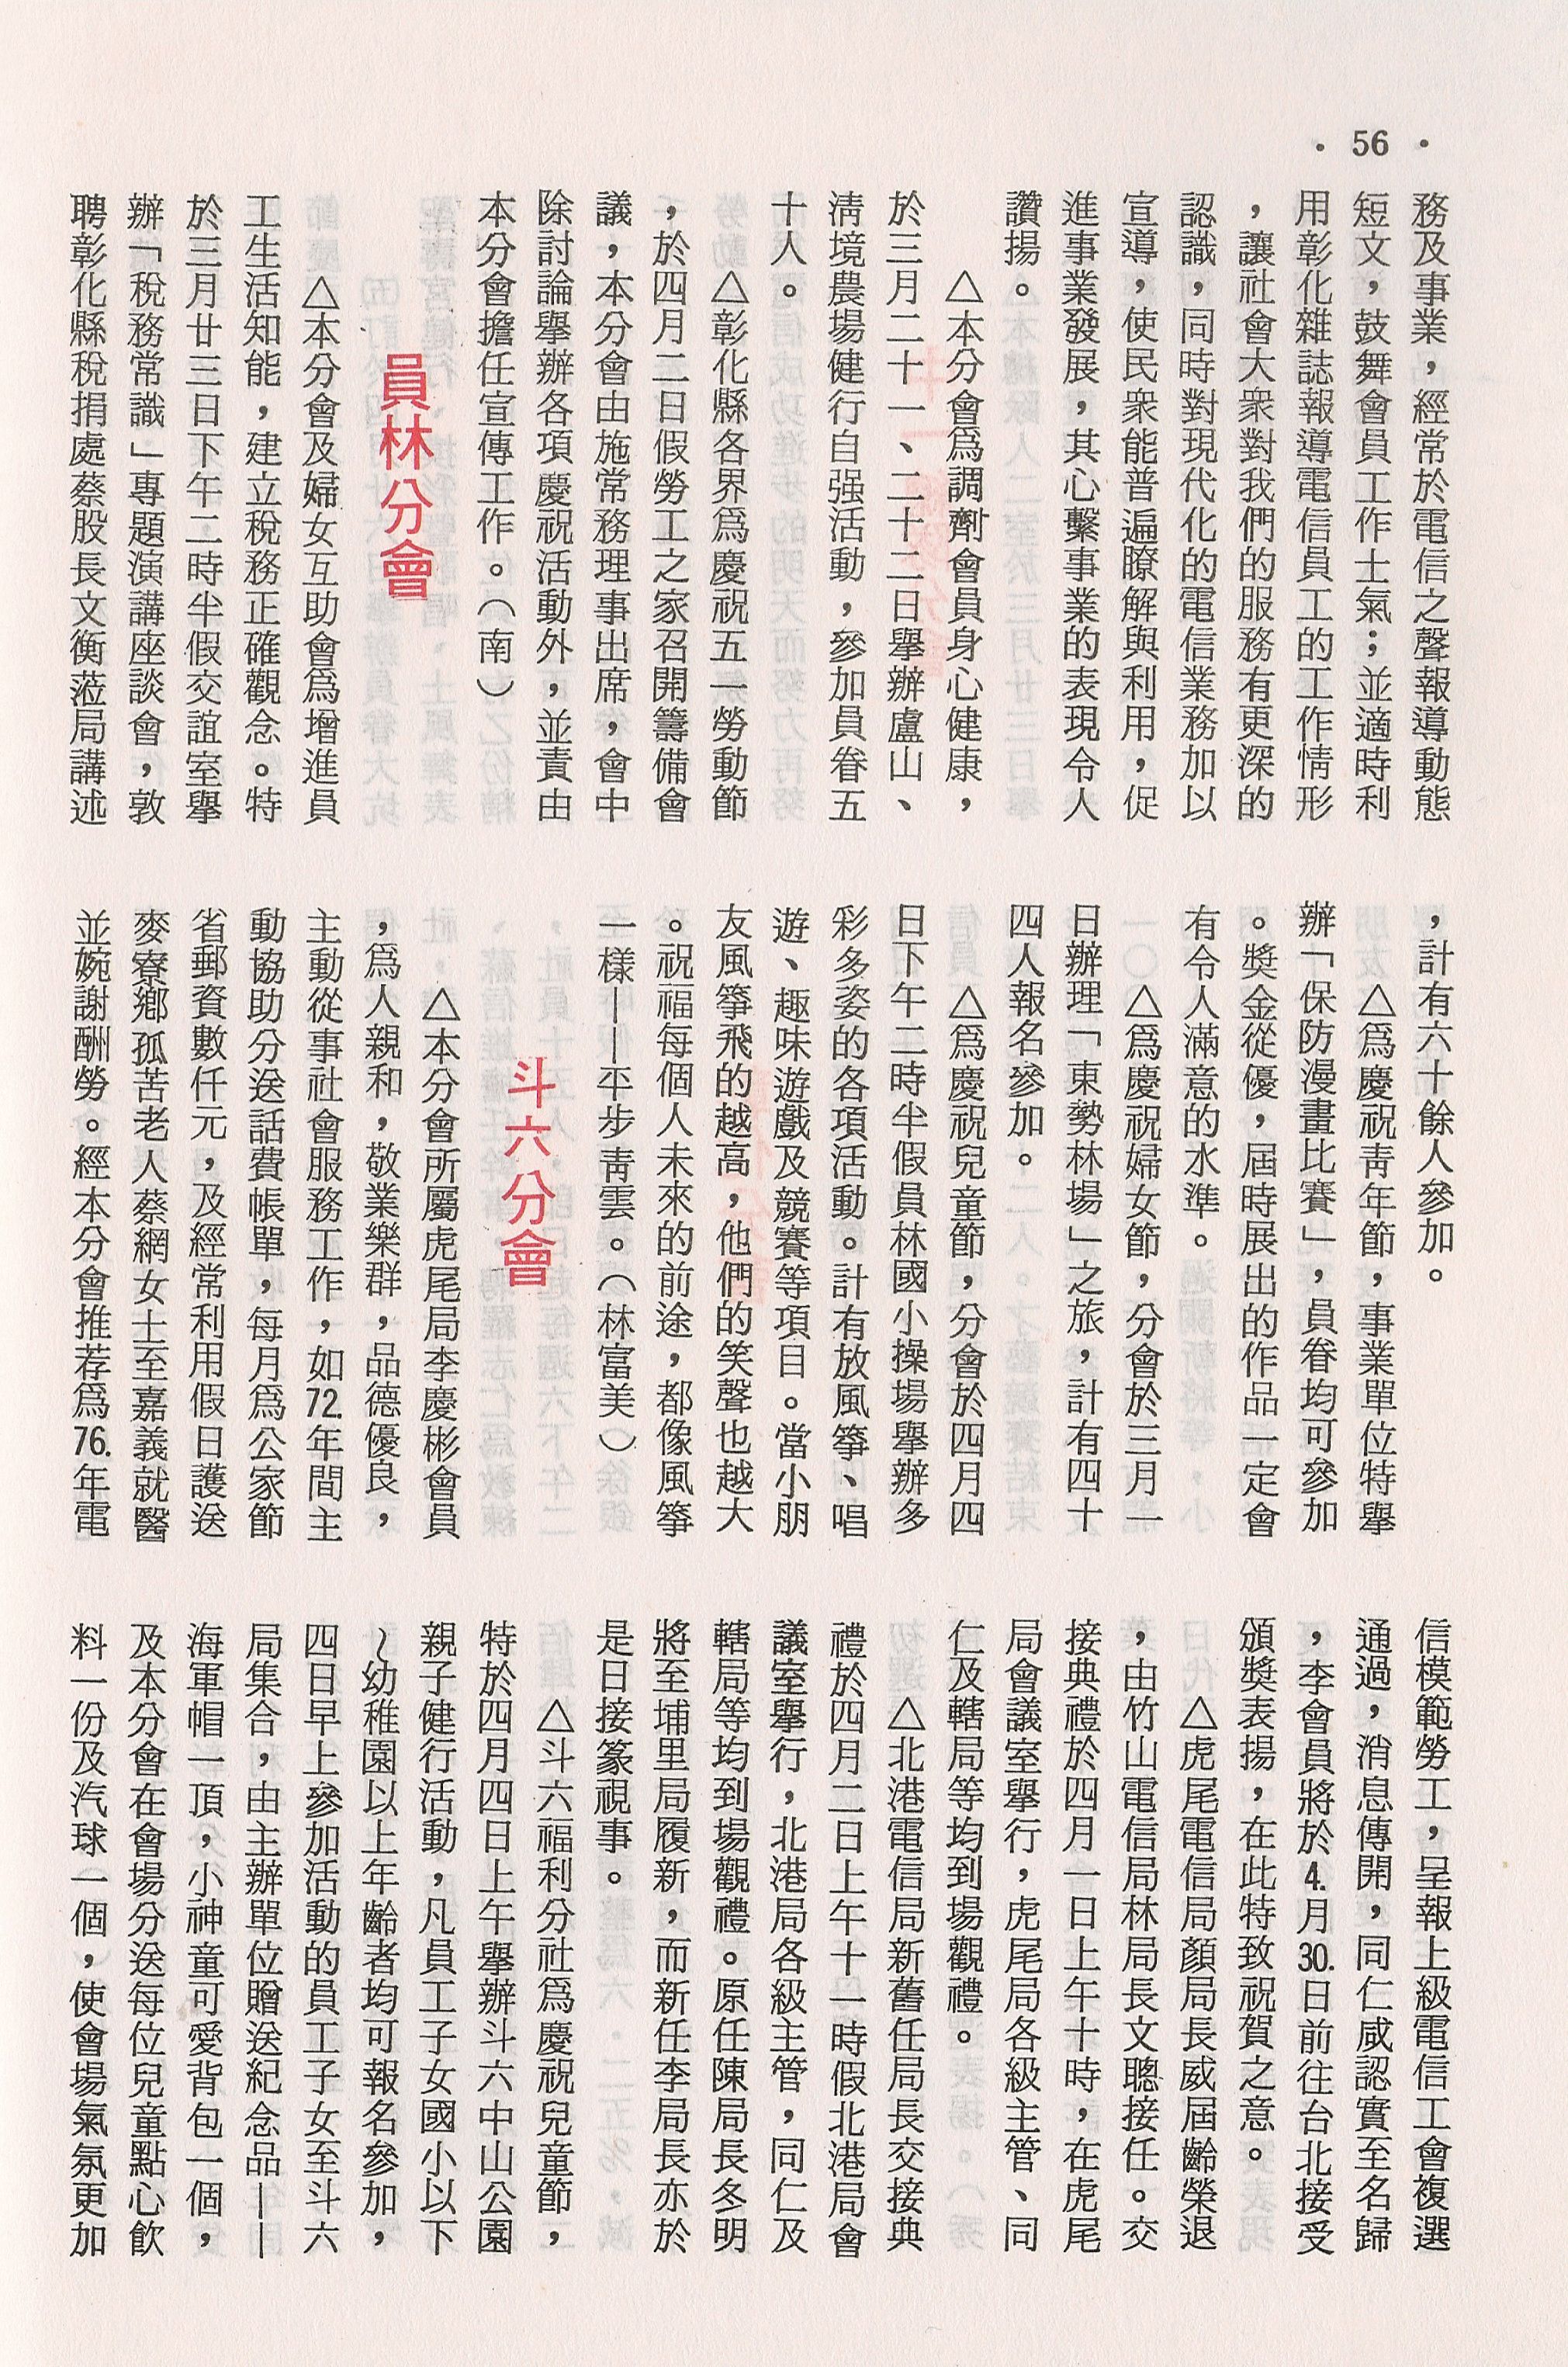 • 56 •
務及事業，經常於電信之聲報導動態
短文，鼓舞會員工作士氣；並適時利
用彰化雜誌報導電信員工的工作情形
，讓社會大衆對我們的服務有更深的
認識，同時對現代化的電信業務加以
宣導，使民衆能普遍瞭解與利用，促
進事業發展，其心繫事業的表現令人
讚揚。
△本分會爲調劑會員身心健康，
於三月二十一、二十二日舉辦盧山、
淸境農場健行自强活動，參加員眷五
十人。
△彰化縣各界爲慶祝五一勞動節
，於四月二日假勞工之家召開籌備會
議，本分會由施常務理事出席，會中
除討論舉辦各項慶祝活動外，並責由
本分會擔任宣傳工作。（南）
員林分會
△本分會及婦女互助會爲增進員
工生活知能，建立稅務正確觀念。特
於三月廿三日下午二時半假交誼室舉
辦「稅務常識」專題演講座談會，敦
聘彰化縣稅捐處蔡股長文衡蒞局講述
，計有六十餘人參加。
△爲慶祝靑年節，事業單位特舉
辦「保防漫畫比賽」，員眷均可參加
。獎金從優，屆時展出的作品一定會
有令人滿意的水準。
△爲慶祝婦女節，分會於三月一
日辦理「東勢林場」之旅，計有四十
四人報名參加。
△爲慶祝兒童節，分會於四月四
日下午二時半假員林國小操場舉辦多
彩多姿的各項活動。計有放風箏、唱
遊、趣味遊戲及競賽等項目。當小朋
友風箏飛的越高，他們的笑聲也越大
。祝福每個人未來的前途，都像風箏
一樣——平步靑雲。（林富美）
斗六分會
△本分會所屬虎尾局李慶彬會員
，爲人親和，敬業樂群，品德優良，
主動從事社會服務工作，如72.年間主
動協助分送話費帳單，每月爲公家節
省郵資數仟元，及經常利用假日護送
麥寮鄉孤苦老人蔡網女士至嘉義就醫
並婉謝酬勞。經本分會推荐爲76.年電
信模範勞工，呈報上級電信工會複選
通過，消息傳開，同仁咸認實至名歸
，李會員將於4.月30.日前往台北接受
頒獎表揚，在此特致祝賀之意。
△虎尾電信局顏局長威屆齡榮退
，由竹山電信局林局長文聰接任。交
接典禮於四月一日上午十時，在虎尾
局會議室舉行，虎尾局各級主管、同
仁及轄局等均到場觀禮。
△北港電信局新舊任局長交接典
禮於四月二日上午十一時假北港局會
議室舉行，北港局各級主管，同仁及
轄局等均到場觀禮。原任陳局長冬明
將至埔里局履新，而新任李局長亦於
是日接篆視事。
△斗六福利分社爲慶祝兒童節，
特於四月四日上午舉辦斗六中山公園
親子健行活動，凡員工子女國小以下
～幼稚園以上年齡者均可報名參加，
四日早上參加活動的員工子女至斗六
局集合，由主辦單位贈送紀念品——
海軍帽一頂，小神童可愛背包一個，
及本分會在會場分送每位兒童點心飮
料一份及汽球一個，使會場氣氛更加